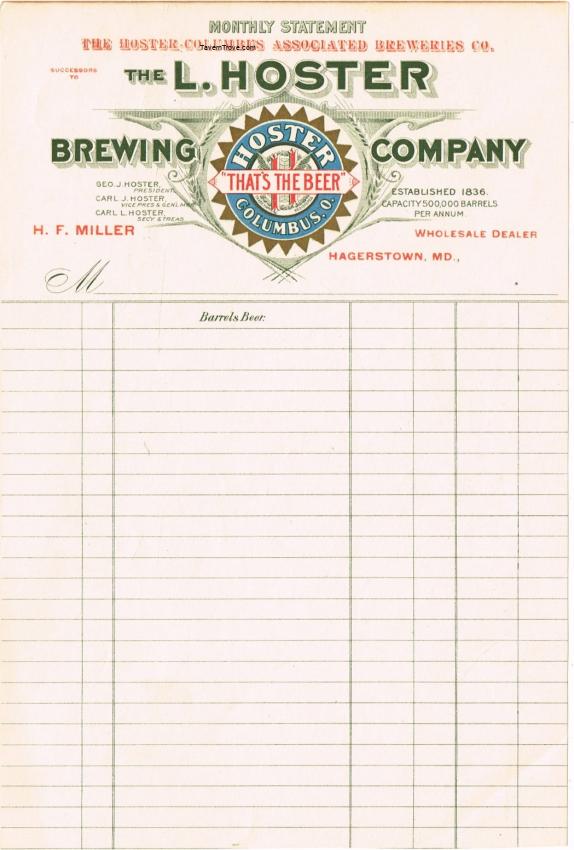 MONTHLY STATEMENT
THE HOSTER-COLUMBUS ASSOCIATED BREWERIES CO.
TavernTrove.com
SUCCESSORS
TO
THE L. HOSTER
BREWING COMPANY
HOSTER
H
"THAT'S THE BEER"
COLUMBUS, O.
GEO. J. HOSTER,
PRESIDENT.
CARL J. HOSTER,
VICE PRES & GENL MGR
CARL L. HOSTER,
SECY & TREAS.
ESTABLISHED 1836.
CAPACITY 500,000 BARRELS
PER ANNUM.
H. F. MILLER
WHOLESALE DEALER
HAGERSTOWN, MD.,
M
Barrels Beer: